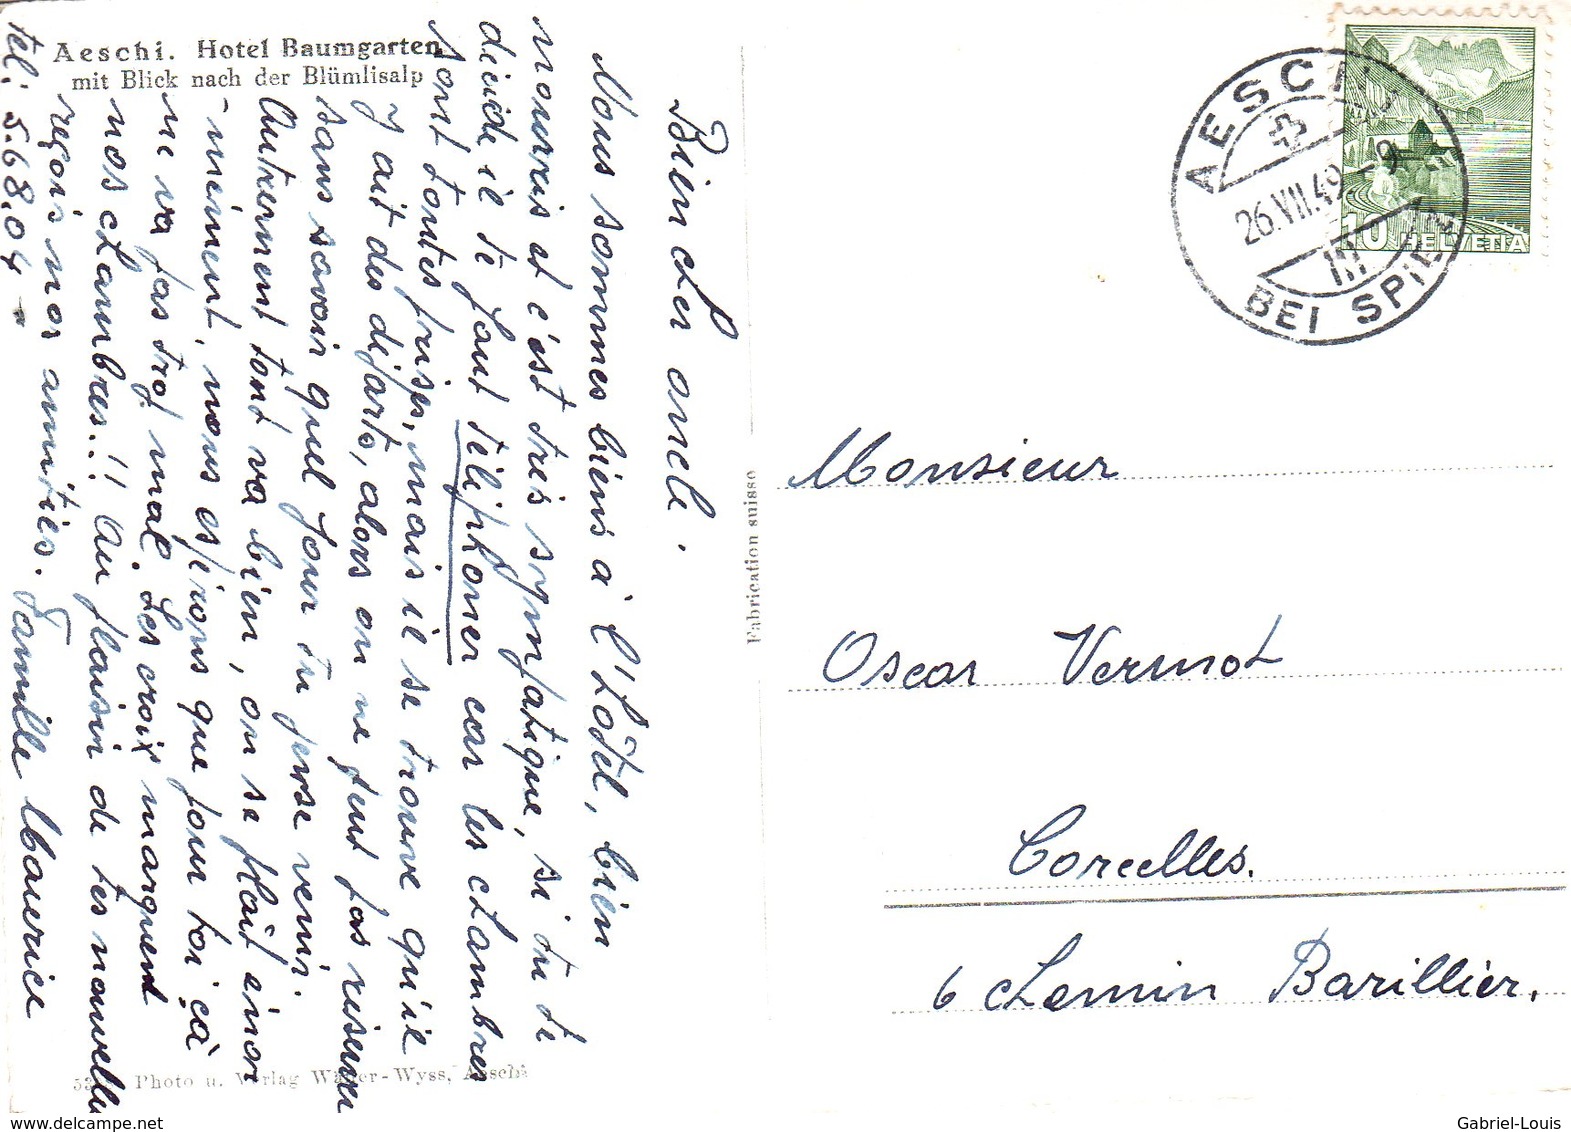 Aeschi. Hotel Baumgarten
mit Blick nach der Blümlisalp
Bien cher oncle.
Nous sommes biens à l'hôtel, bien
nourris et c'est très sympatique, si tu te
décide il te faut téléphoner car les chambres
sont toutes prises, mais il se trouve qu'il
y ait des départs, alors on ne peut pas réserver
sans savoir quel jour tu pense venir.
Autrement tout va bien, on se plaît énor
-mément, nous espérons que pour toi çà
ne va pas trop mal. Les croix marquent
nos chambres!! Au plaisir de tes nouvelles
reçois nos amitiés. Famille Maurice
tel: 5.68.04
Fabrication suisse
Photo u. Verlag Walter-Wyss, Aeschi
AESCHI
26.VII.49 - 9
III
BEI SPIEZ
10 HELVETIA
Monsieur
Oscar Vermot
Corcelles.
6 chemin Barillier.
www.delcampe.net
Gabriel-Louis